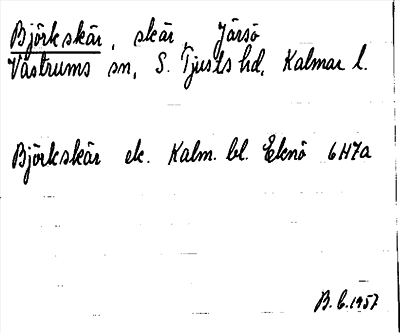 Björkskär, skär, Järsö
Västrums sn, S. Tjusts hd, Kalmar l.
Björkskär ek. Kalm. bl. Eknö 6H7a
B.C. 1957